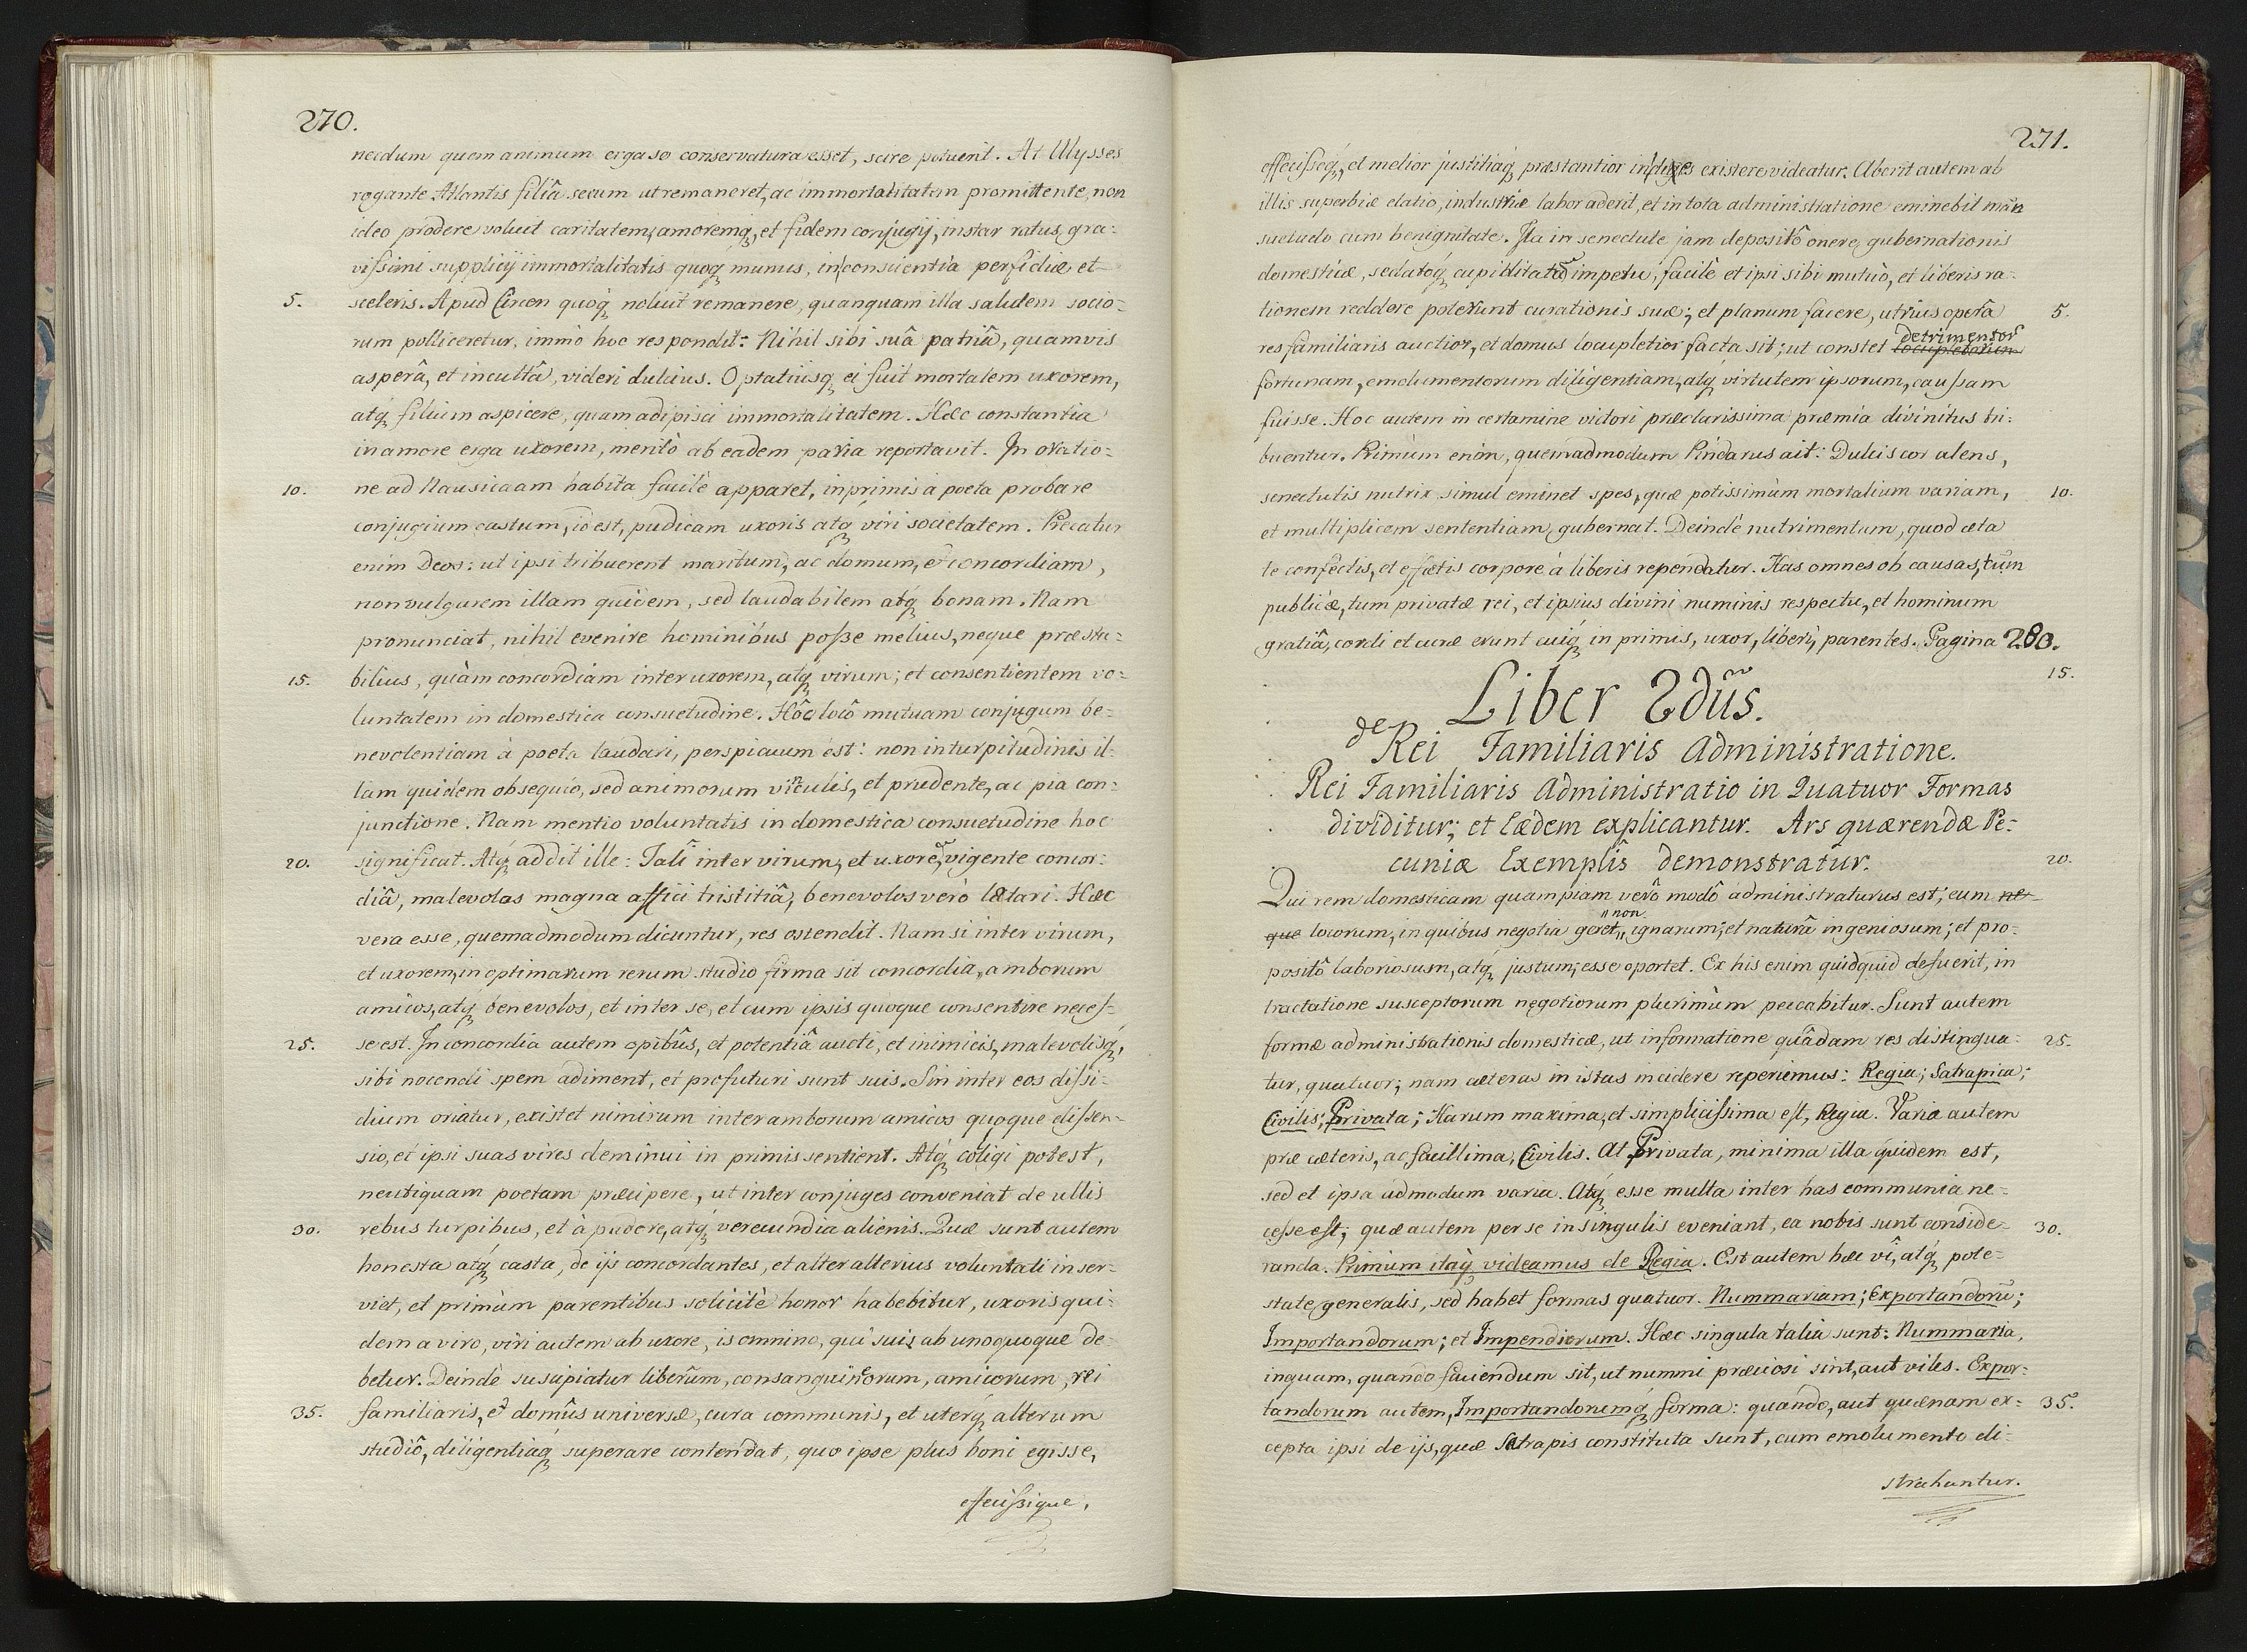 270.
necdum quem animum erga se conservatura esset, scire potuerit. At Ulysses
rogante Atlantis filiâ secum ut remaneret, ac immortalitatem promittente, non
ideo prodere voluit caritatem, amoremq, et fidem conjugij, instar ratus gra:
vissimi supplicij immortalitatis quoq munus, in conscientia perfidiæ et
5. sceleris. Apud Circen quoq noluit remanere, quanquam illa salutem socio:
rum polliceretur, immò hoc respondit: Nihil sibi suâ patriâ, quamvis
asperâ, et incultâ, videri dulcius. Optatiusq ei fuit mortalem uxorem,
atq filium aspicere, quam adipisci immortalitatem. Hæc constantia
in amore erga uxorem, meritò ab eadem paria reportavit. In oratio:
10. ne ad Nausicaam habita facilè apparet, inprimis a poeta probare
conjugium castum, id est, pudicam uxoris atq viri societatem. Precatur
enim Deos: ut ipsi tribuerent maritum, ac domum, & concordiam,
non vulgarem illam quidem, sed laudabilem atq bonam. Nam
pronunciat, nihil evenire hominibus posse melius, neque præsta:
15. bilius, quàm concordiam inter uxorem, atq virum; et consentientem vo:
luntatem in domestica consuetudine. Hôc locô mutuam conjugum be:
nevolentiam à poeta laudari, perspicuum est: non in turpitudinis il:
lam quidem obsequio, sed animorum vinculis, et prudente, ac pia con:
junctione. Nam mentio voluntatis in domestica consuetudine hoc
20. significat. Atq addit ille: Tali inter virum, et uxorē, vigente concor:
diâ, malevolos magna affici tristitiâ, benevolos verò lætari. Hæc
vera esse, quemadmodum dicuntur, res ostendit. Nam si inter virum,
et uxorem, in optimarum rerum studio firma sit concordia, amborum
amicos, atq benevolos, et inter se, et cum ipsis quoque consentire neces:
25. se est. In concordia autem opibûs, et potentiâ aucti, et inimicis, malevolisq,
sibi nocendi spem adiment, et profuturi sunt suis. Sin inter eos dissi:
dium oriatur, existet nimirum inter amborum amicos quoque dissen:
sio, et ipsi suas vires deminui in primis sentient. Atq coligi potest,
neutiquam poetam præcipere, ut inter conjuges conveniat de ullis
30. rebus turpibus, et à pudore, atq verecundia alienis. Quæ sunt autem
honesta atq casta, de ijs concordantes, et alter alterius voluntati inser:
viet, et primùm parentibus solicitè honor habebitur, uxoris qui:
dem a viro, viri autem ab uxore, is omnino, qui suis ab unoquoque de:
betur. Deindè suscipiatur liberûm, consanguineorum, amicorum, rei
35. familiaris, et domûs universæ, cura communis, et uterq alterum
studiô, diligentiaq superare contendat, quo ipse plus boni egisse,
effecissique,
271.
effecisseq, et melior justitiaq præstantior indiges existere videatur. Aberit autem ab
illis superbiæ elatio, industriæ labor aderit, et in tota administratione eminebit man
suetudo cum benignitate. Ita in senectute jam depositô onere gubernationis
domesticæ, sedatoq cupiditatū impetu, facilè et ipsi sibi mutuò, et liberis ra:
tionem reddere poterunt curationis suæ; et planum facere, utrius operâ 5.
res familiaris auctior, et domus locupletior facta sit; ut constet locupletatum detrimentor
fortunam, emolumentorum diligentiam, atq virtutem ipsorum, caussam
fuisse. Hoc autem in certamine victori præclarissima præmia divinitus tri:
buentur. Primùm enim, quemadmodum Pindarus ait: Dulcis cor alens,
senectutis nutrix simul eminet spes, quæ potissimùm mortalium variam, 10.
et multiplicem sententiam gubernat. Deindè nutrimentum, quod æta
te confectis, et effætis corpore à liberis rependatur. Has omnes ob causas, tum
publicæ, tum privatæ rei, et ipsius divini numinis respectu, et hominum
gratiâ, cordi et curæ erunt cuiq in primis, uxor, liberi, parentes. Pagina 280.
15.
Liber 2dus.
de Rei Familiaris Administratione.
Rei Familiaris Administratio in Quatuor Formas
dividitur; et Eædem explicantur. Ars quærendæ Pe:
cuniæ Exemplîs demonstratur. 20.
Qui rem domesticam quampiam verô modô administraturus est; eum ne
que locorum, in quibus negotia geret, non ignarum; et naturâ ingeniosum; et pro:
positô laboriosum, atq justum, esse oportet. Ex his enim quidquid defuerit, in
tractatione susceptorum negotiorum plurimùm peccabitur. Sunt autem
formæ administrationis domesticæ, ut informatione quâdam res distingua: 25.
tur, quatuor; nam cæteras in istas incidere reperiemus: Regia; Satrapica;
Civilis; Privata; Harum maxima, et simplicissima est, Regia. Varia autem
præ cæteris, ac facillima, Civilis. At Privata, minima illa quidem est,
sed et ipsa admodum varia. Atq esse multa inter has communia ne:
cesse est; quæ autem per se in singulis eveniant, ea nobis sunt conside: 30.
randa. Primùm itaq videamus de Regia. Est autem hæc vî, atq pote:
state generalis, sed habet formas quatuor. Nummariam; Exportandorū;
Importandorum; et Impendiorum. Hæc singula talia sunt: Nummaria,
inquam, quando faciendum sit, ut nummi præciosi sint, aut viles. Expor:
tandorum autem, Importandorumq forma: quando, aut quænam ex: 35.
cepta ipsi de ijs, quæ Satrapis constituta sunt, cum emolumento di:
strahuntur.